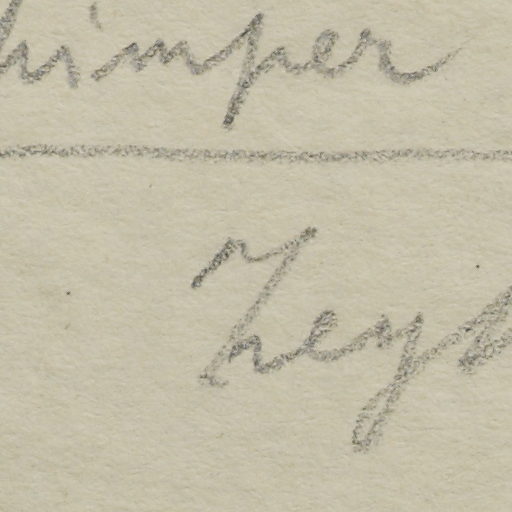 himper
Zeyh